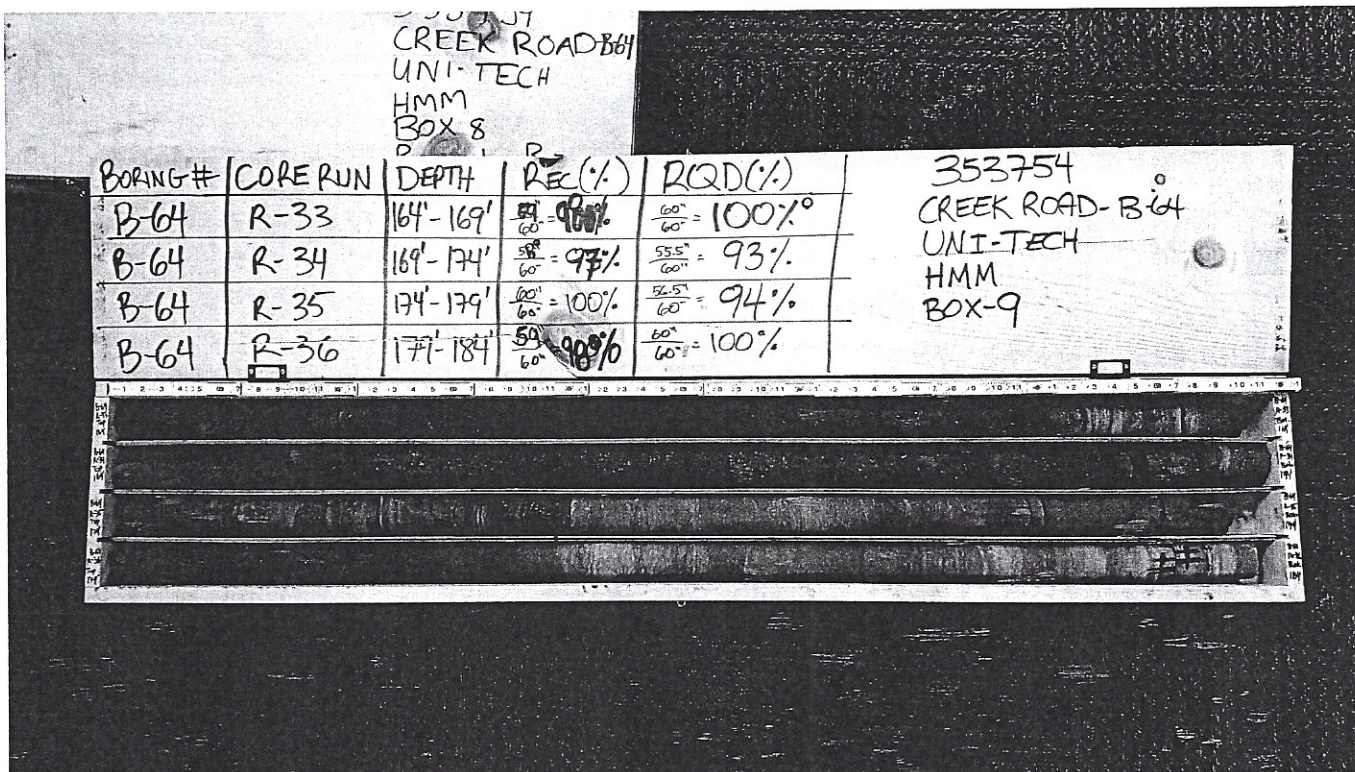 CREEK ROAD-B-64
UNI-TECH
HMM
BOX 8
BORING # CORE RUN DEPTH REC(%) RQD(%)
B-64 R-33 164'-169' 60"/60" = 100%
B-64 R-34 169'-174' 58"/60" = 97% 55.5"/60" = 93%
B-64 R-35 174'-179' 60"/60" = 100% 56.5"/60" = 94%
B-64 R-36 179'-184' 59"/60" = 98% 60"/60" = 100%
353754
CREEK ROAD-B-64
UNI-TECH
HMM
BOX-9